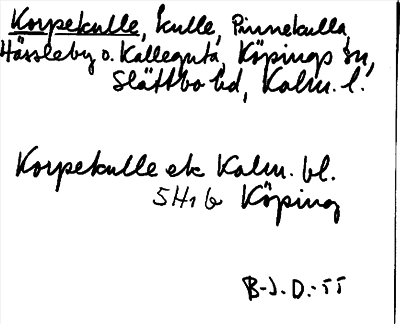 Korpekulle, kulle, Pinnekulla,
Hässleby o. Kalleguta, Köpings sn,
Slättbo hd, Kalm. l.
Korpekulle ek Kalm. bl.
5H1b Köping
B-J. D. -55